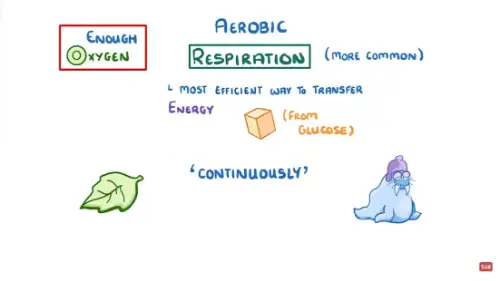 ENOUGH
OXYGEN
AEROBIC
RESPIRATION (MORE COMMON)
MOST EFFICIENT WAY TO TRANSFER
ENERGY
(FROM
GLUCOSE)
'CONTINUOUSLY'
SUB